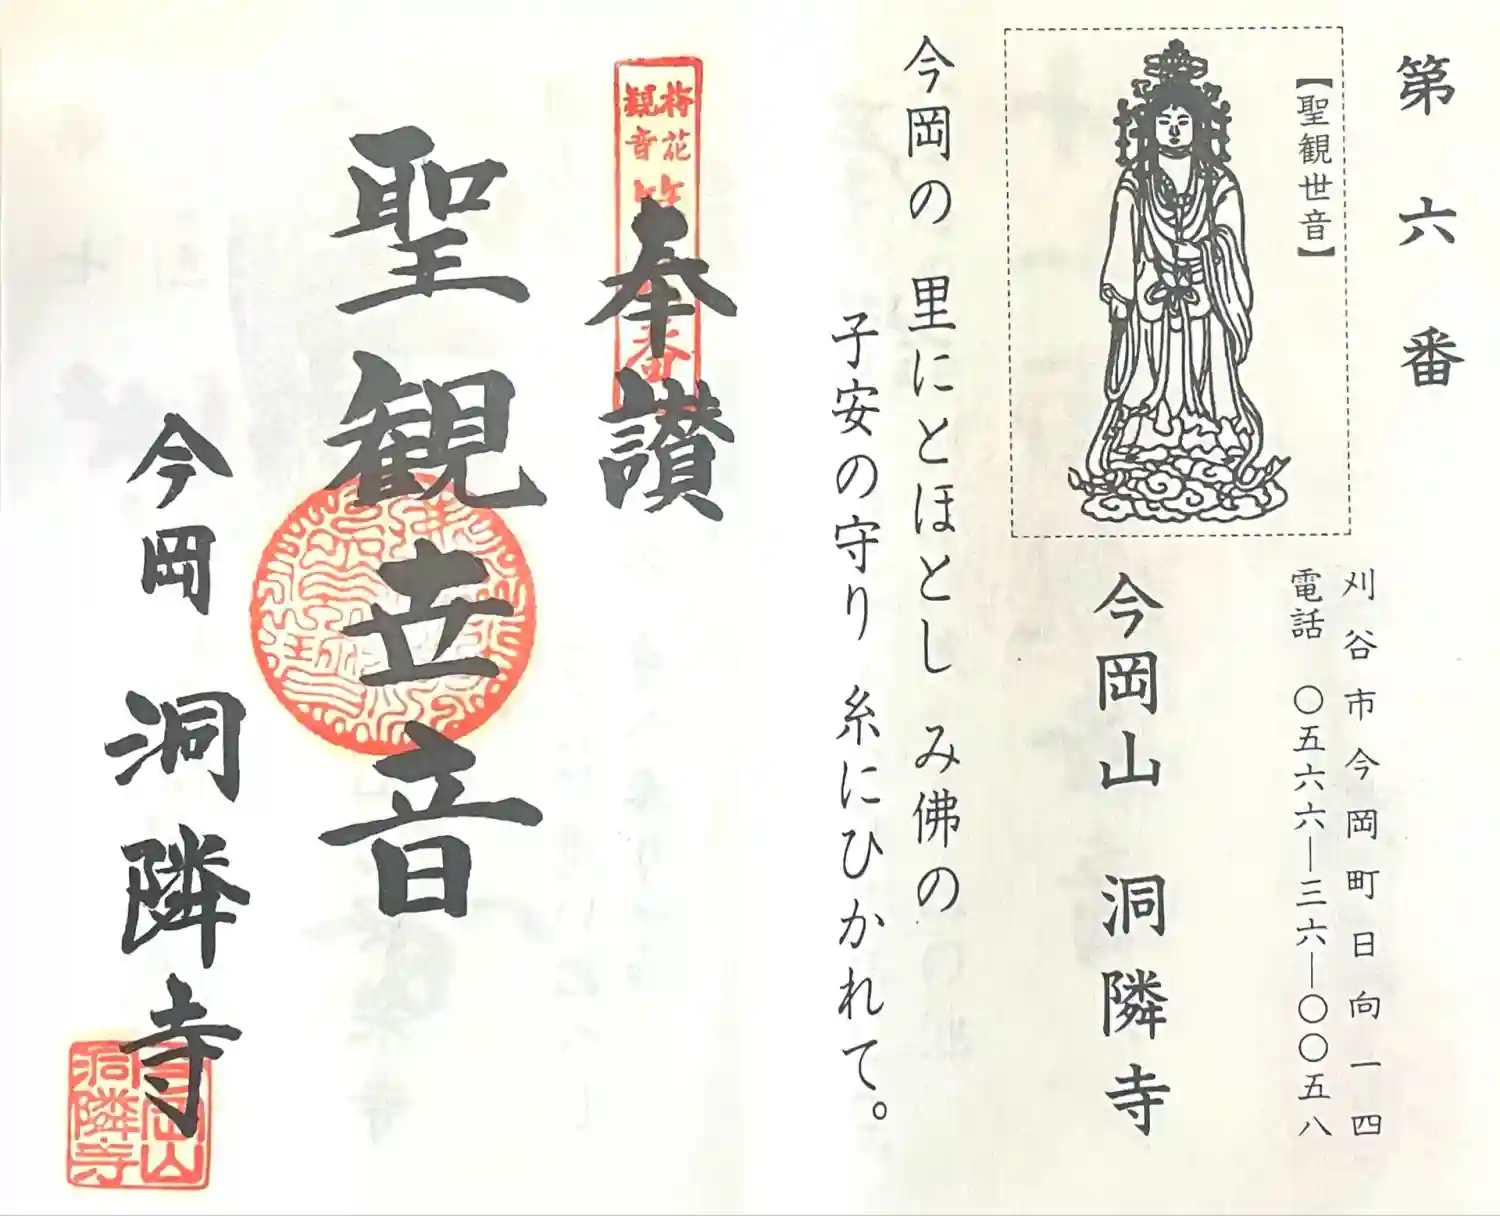 第六番
【聖観世音】
刈谷市今岡町日向一四
電話 〇五六六―三六―〇〇五八
今岡山 洞隣寺
今岡の 里にとほとし み佛の
子安の守り 糸にひかれて。
梅花
観音
番
奉讃
聖観世音
今岡 洞隣寺
今岡山
洞隣寺